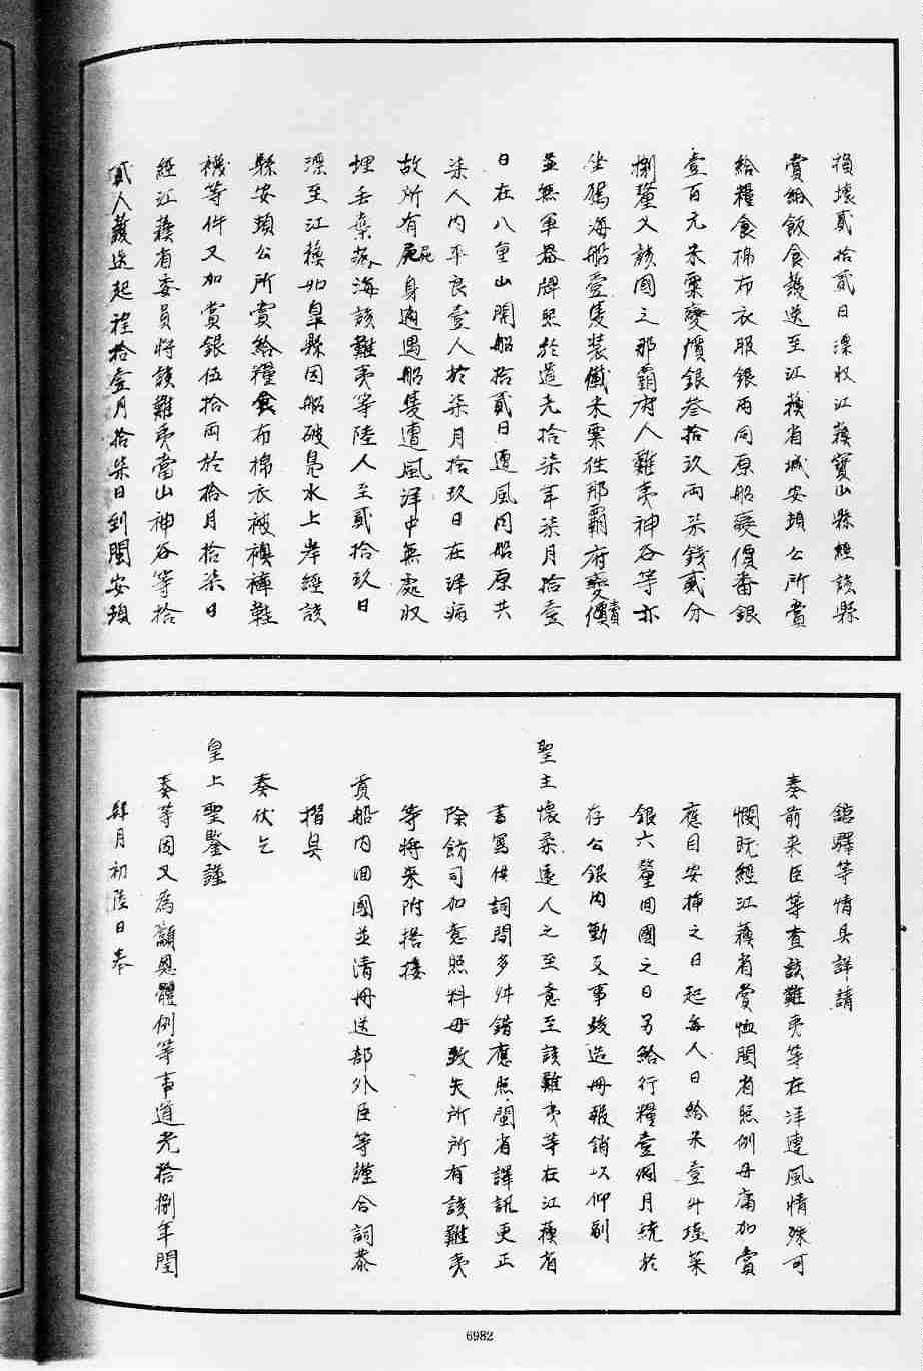 損壞貳拾貳日漂收江蘇寶山縣經該縣
賞給飯食護送至江蘇省城安頓公所賞
給糧食棉布衣服銀兩同原船變價番銀
壹百元米粟變價銀叁拾玖兩柒錢貳分
捌釐又該國之那霸府人難夷神谷等亦
坐駕海船壹隻裝儎米粟往那霸府變價賣
並無軍器牌照於道光拾柒年柒月拾壹
日在八重山開船拾貳日遭風同船原共
柒人內平良壹人於柒月拾玖日在洋病
故所有屍身適遇船隻遭風洋中無處收
埋丟棄落海該難夷等陸人至貳拾玖日
漂至江蘇如皋縣因船破鳧水上岸經該
縣安頓公所賞給糧食布棉衣被襖褲鞋
襪等件又加賞銀伍拾兩於拾月拾柒日
經江蘇省委員將該難夷當山神谷等拾
貳人護送起程拾壹月拾柒日到閩安頓
館驛等情具詳請
奏前來臣等查該難夷等在洋遭風情殊可
憫既經江蘇省賞恤閩省照例毋庸加賞
應自安插之日起每人日給米壹升塩菜
銀六釐回國之日另給行糧壹個月統於
存公銀內動支事竣造冊報銷以仰副
聖主懷柔遠人之至意至該難夷等在江蘇省
書寫供詞間多舛錯應照閩省譯訊更正
除飭司加意照料毋致失所所有該難夷
等將來附搭接
貢船內回國並清冊送部外臣等謹合詞恭
摺具
奏伏乞
皇上聖鑒謹
奏等因又為籲恩體例等事道光拾捌年閏
肆月初陸日奉
6982